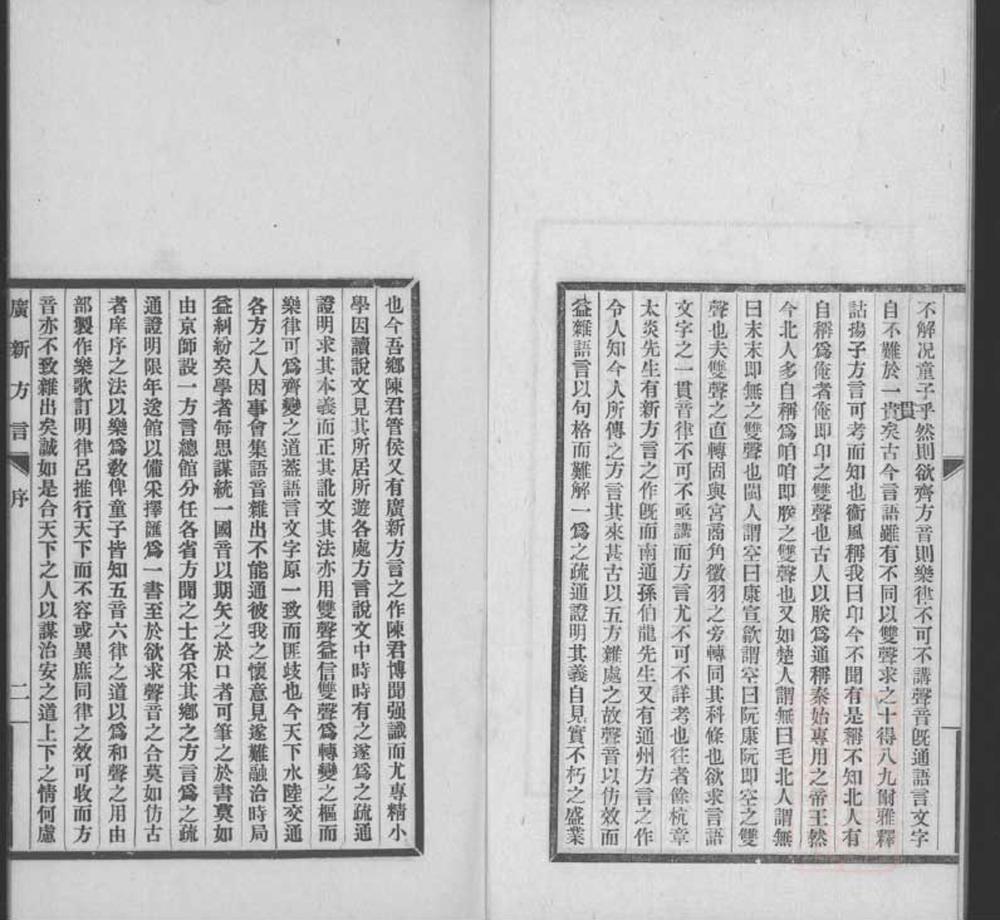 不解况童子乎然則欲齊方音則樂律不可不講聲音旣通語言文字
自不難於一貫矣古今言語雖有不同以雙聲求之十得八九爾雅釋
詁揚子方言可考而知也衞風稱我曰卬今不聞有是稱不知北人有
自稱爲俺者俺即卬之雙聲也古人以朕爲通稱秦始專用之帝王然
今北人多自稱爲咱咱即朕之雙聲也又如楚人謂無曰毛北人謂無
曰末末即無之雙聲也閩人謂空曰康宣歙謂空曰阬康阬即空之雙
聲也夫雙聲之直轉固與宮啇角徵羽之旁轉同其科條也欲求言語
文字之一貫音律不可不亟講而方言尤不可不詳考也往者餘杭章
太炎先生有新方言之作旣而南通孫伯龍先生又有通州方言之作
令人知今人所傳之方言其來甚古以五方雜處之故聲音以仿效而
益雜語言以句格而難解一爲之疏通證明其義自見實不朽之盛業
也今吾鄉陳君管侯又有廣新方言之作陳君博聞强識而尤專精小
學因讀說文見其所居所遊各處方言說文中時時有之遂爲之疏通
證明求其本義而正其訛文其法亦用雙聲益信雙聲爲轉變之樞而
樂律可爲齊變之道葢語言文字原一致而匪歧也今天下水陸交通
各方之人因事會集語音雜出不能通彼我之懷意見遂難融洽時局
益糾紛矣學者每思謀統一國音以期矢之於口者可筆之於書莫如
由京師設一方言總館分任各省方聞之士各采其鄉之方言爲之疏
通證明限年送館以備采擇匯爲一書至於欲求聲音之合莫如仿古
者庠序之法以樂爲敎俾童子皆知五音六律之道以爲和聲之用由
部製作樂歌訂明律呂推行天下而不容或異庶同律之效可收而方
音亦不致雜出矣誠如是合天下之人以謀治安之道上下之情何慮
廣新方言 序 二